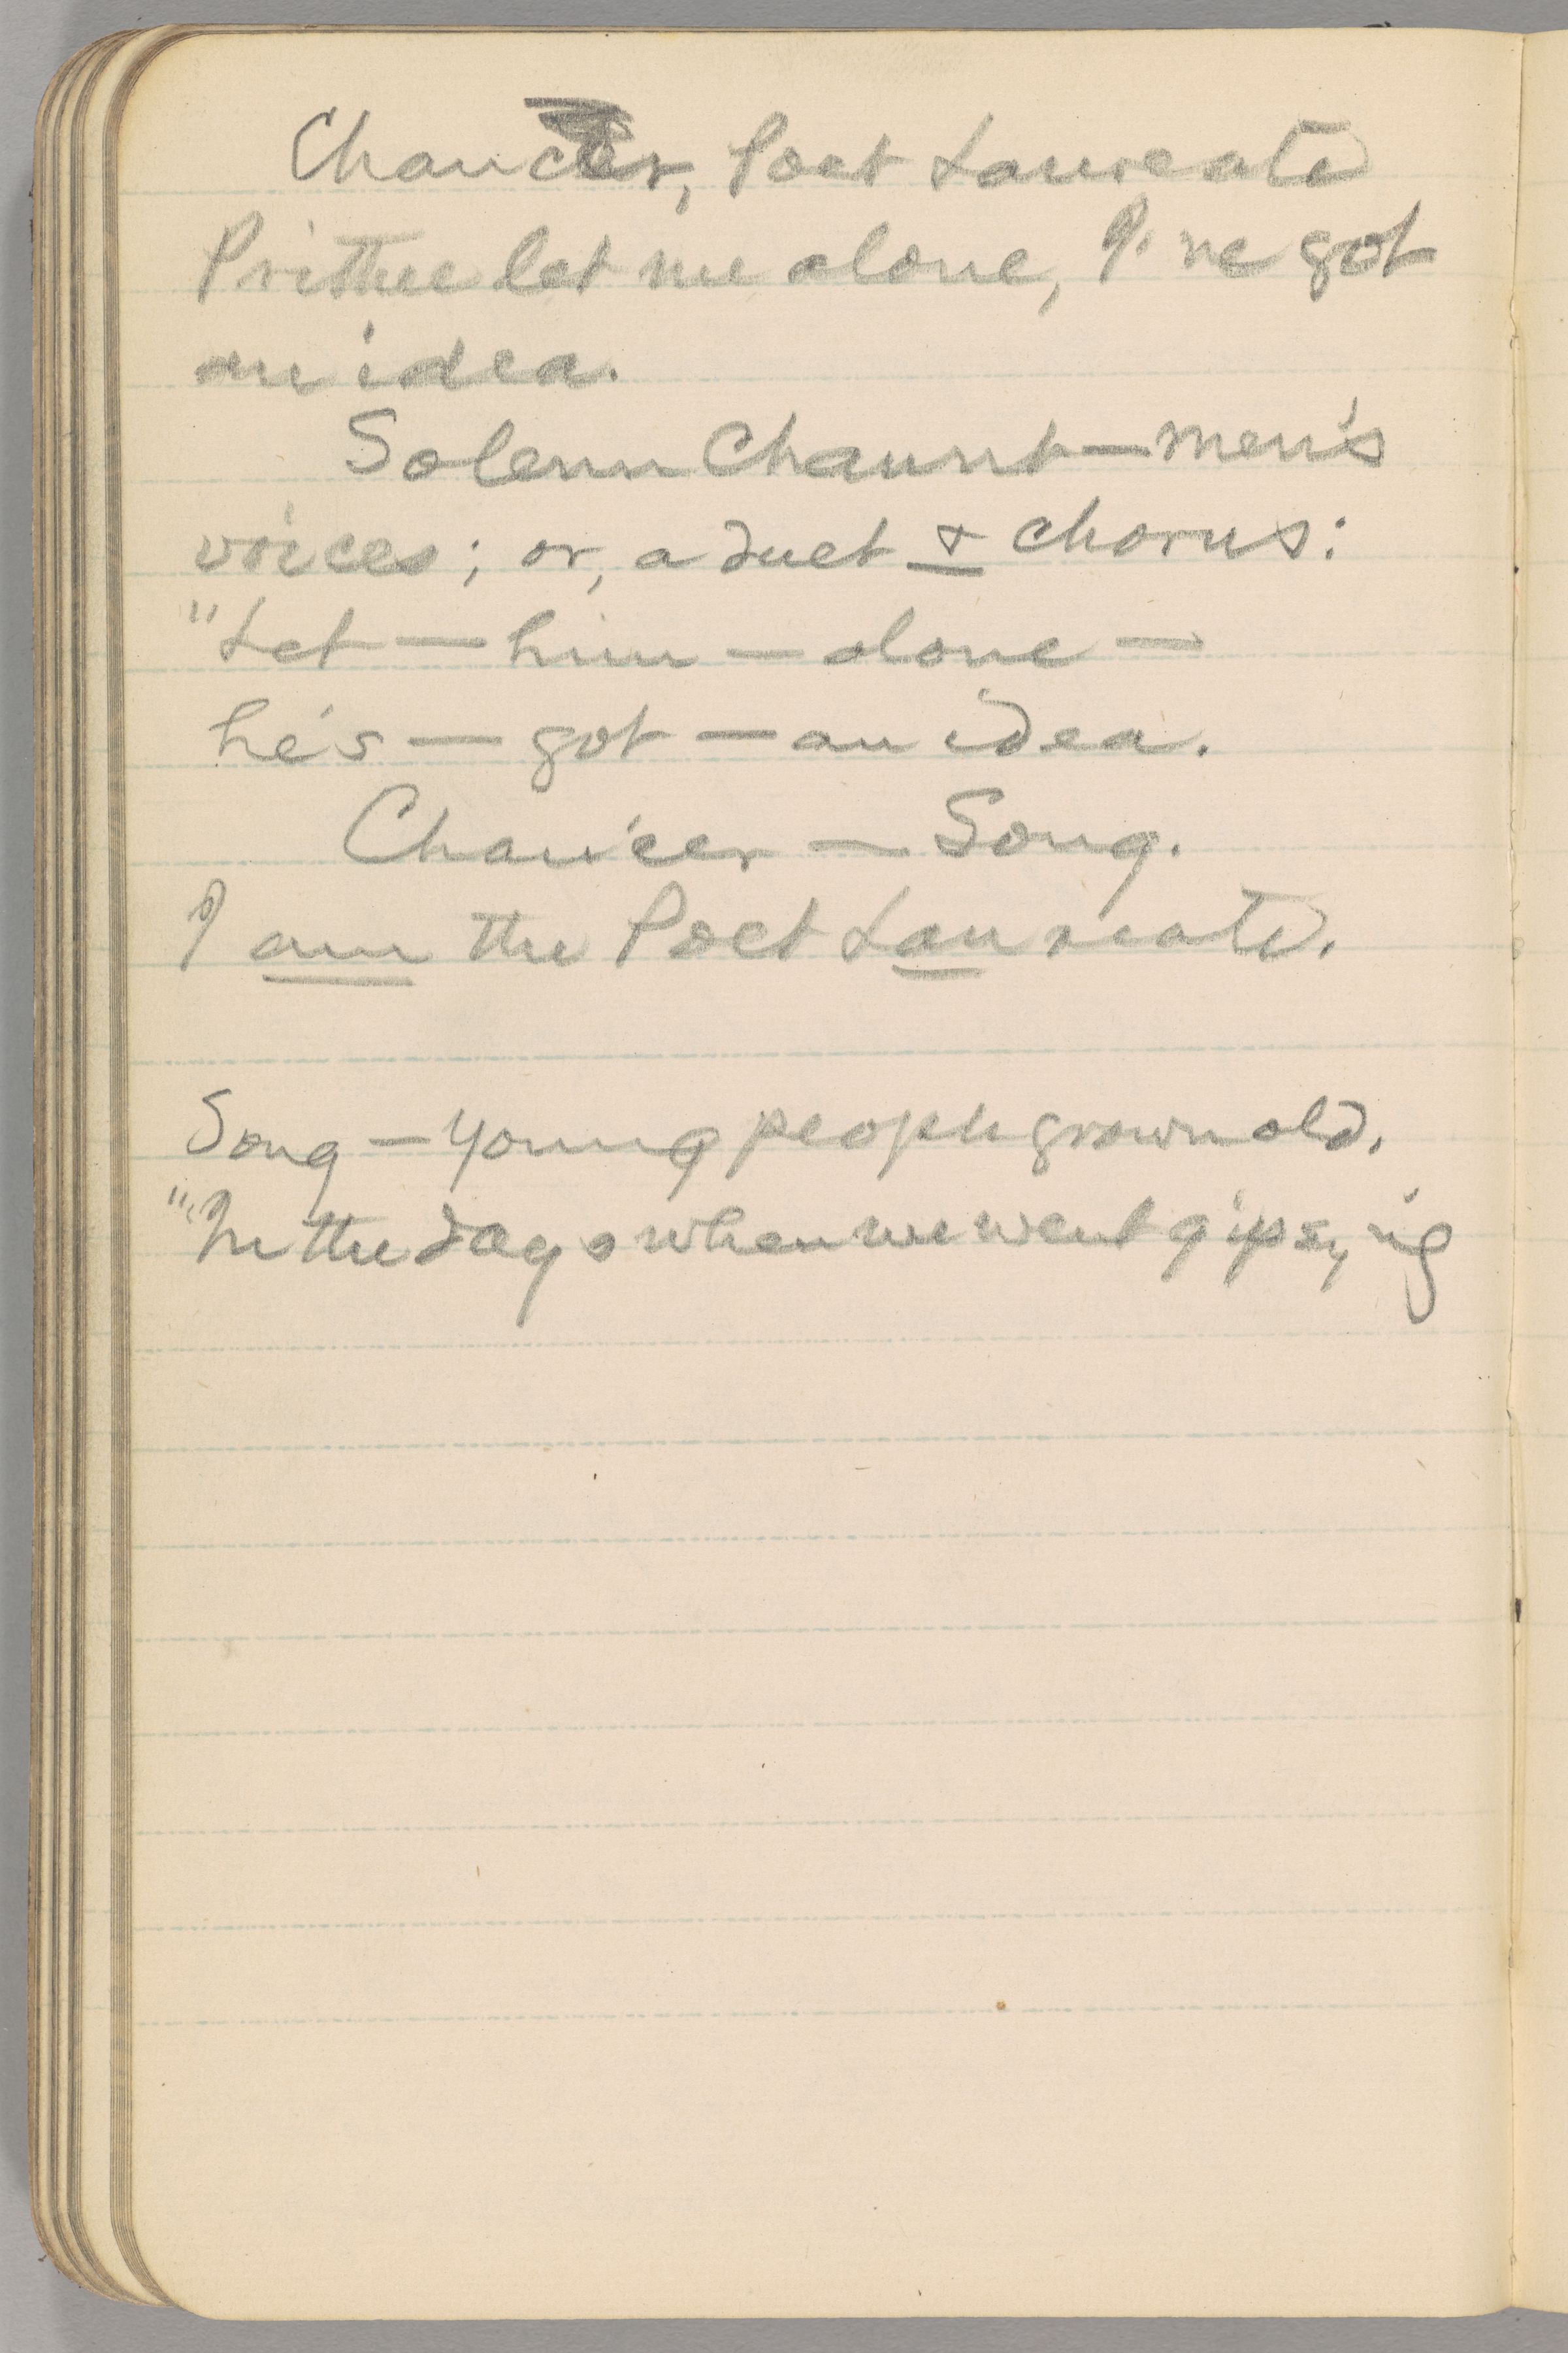 Chaucer, Poet Laureate
Prithee let me alone, I've got
an idea.
Solemn Chaunt — men's
voices; or, a duet & chorus:
"Let — him — alone —
he's — got — an idea.
Chaucer — Song.
I am the Poet Laureate.
Song — young people grown old.
"In the days when we went gipsying